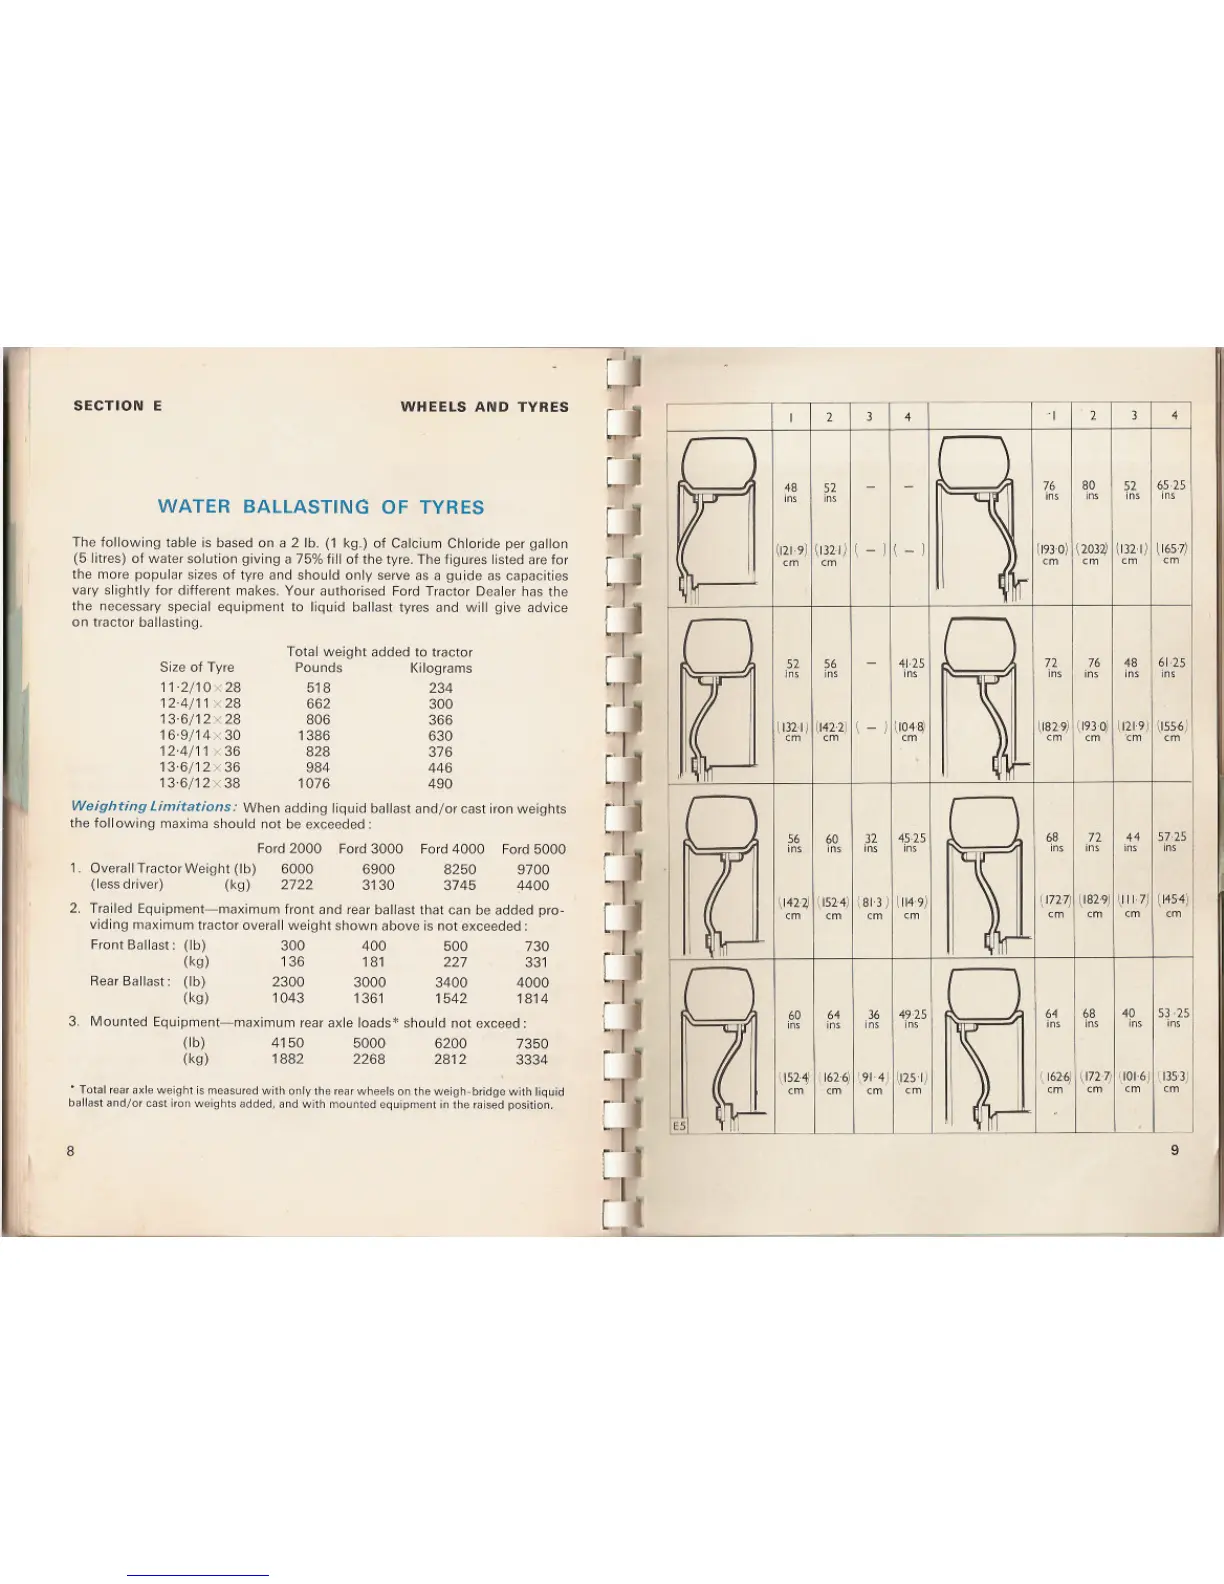 SECTION E WHEELS AND TYRES
WATER BALLASTING OF TYRES
The following table is based on a 2 lb. (1 kg.) of Calcium Chloride per gallon
(5 litres) of water solution giving a 75% fill of the tyre. The figures listed are for
the more popular sizes of tyre and should only serve as a guide as capacities
vary slightly for different makes. Your authorised Ford Tractor Dealer has the
the necessary special equipment to liquid ballast tyres and will give advice
on tractor ballasting.
Total weight added to tractor
Size of Tyre Pounds Kilograms
11·2/10×28 518 234
12·4/11×28 662 300
13·6/12×28 806 366
16·9/14×30 1386 630
12·4/11×36 828 376
13·6/12×36 984 446
13·6/12×38 1076 490
Weighting Limitations: When adding liquid ballast and/or cast iron weights
the following maxima should not be exceeded:
Ford 2000 Ford 3000 Ford 4000 Ford 5000
1. Overall Tractor Weight (lb) 6000 6900 8250 9700
(less driver) (kg) 2722 3130 3745 4400
2. Trailed Equipment—maximum front and rear ballast that can be added pro-
viding maximum tractor overall weight shown above is not exceeded:
Front Ballast: (lb) 300 400 500 730
(kg) 136 181 227 331
Rear Ballast: (lb) 2300 3000 3400 4000
(kg) 1043 1361 1542 1814
3. Mounted Equipment—maximum rear axle loads* should not exceed:
(lb) 4150 5000 6200 7350
(kg) 1882 2268 2812 3334
* Total rear axle weight is measured with only the rear wheels on the weigh-bridge with liquid
ballast and/or cast iron weights added, and with mounted equipment in the raised position.
8
1 2 3 4 1 2 3 4
48 52 — — 76 80 52 65·25
ins ins ins ins ins ins
(121·9) (132·1) ( — ) ( — ) (193·0) (203·2) (132·1) (165·7)
cm cm cm cm cm cm
52 56 — 41·25 72 76 48 61·25
ins ins ins ins ins ins ins
(132·1) (142·2) ( — ) (104·8) (182·9) (193·0) (121·9) (155·6)
cm cm cm cm cm cm cm
56 60 32 45·25 68 72 44 57·25
ins ins ins ins ins ins ins ins
(142·2) (152·4) (81·3) (114·9) (172·7) (182·9) (111·7) (145·4)
cm cm cm cm cm cm cm cm
60 64 36 49·25 64 68 40 53·25
ins ins ins ins ins ins ins ins
(152·4) (162·6) (91·4) (125·1) (162·6) (172·7) (101·6) (135·3)
cm cm cm cm cm cm cm cm
E5
9